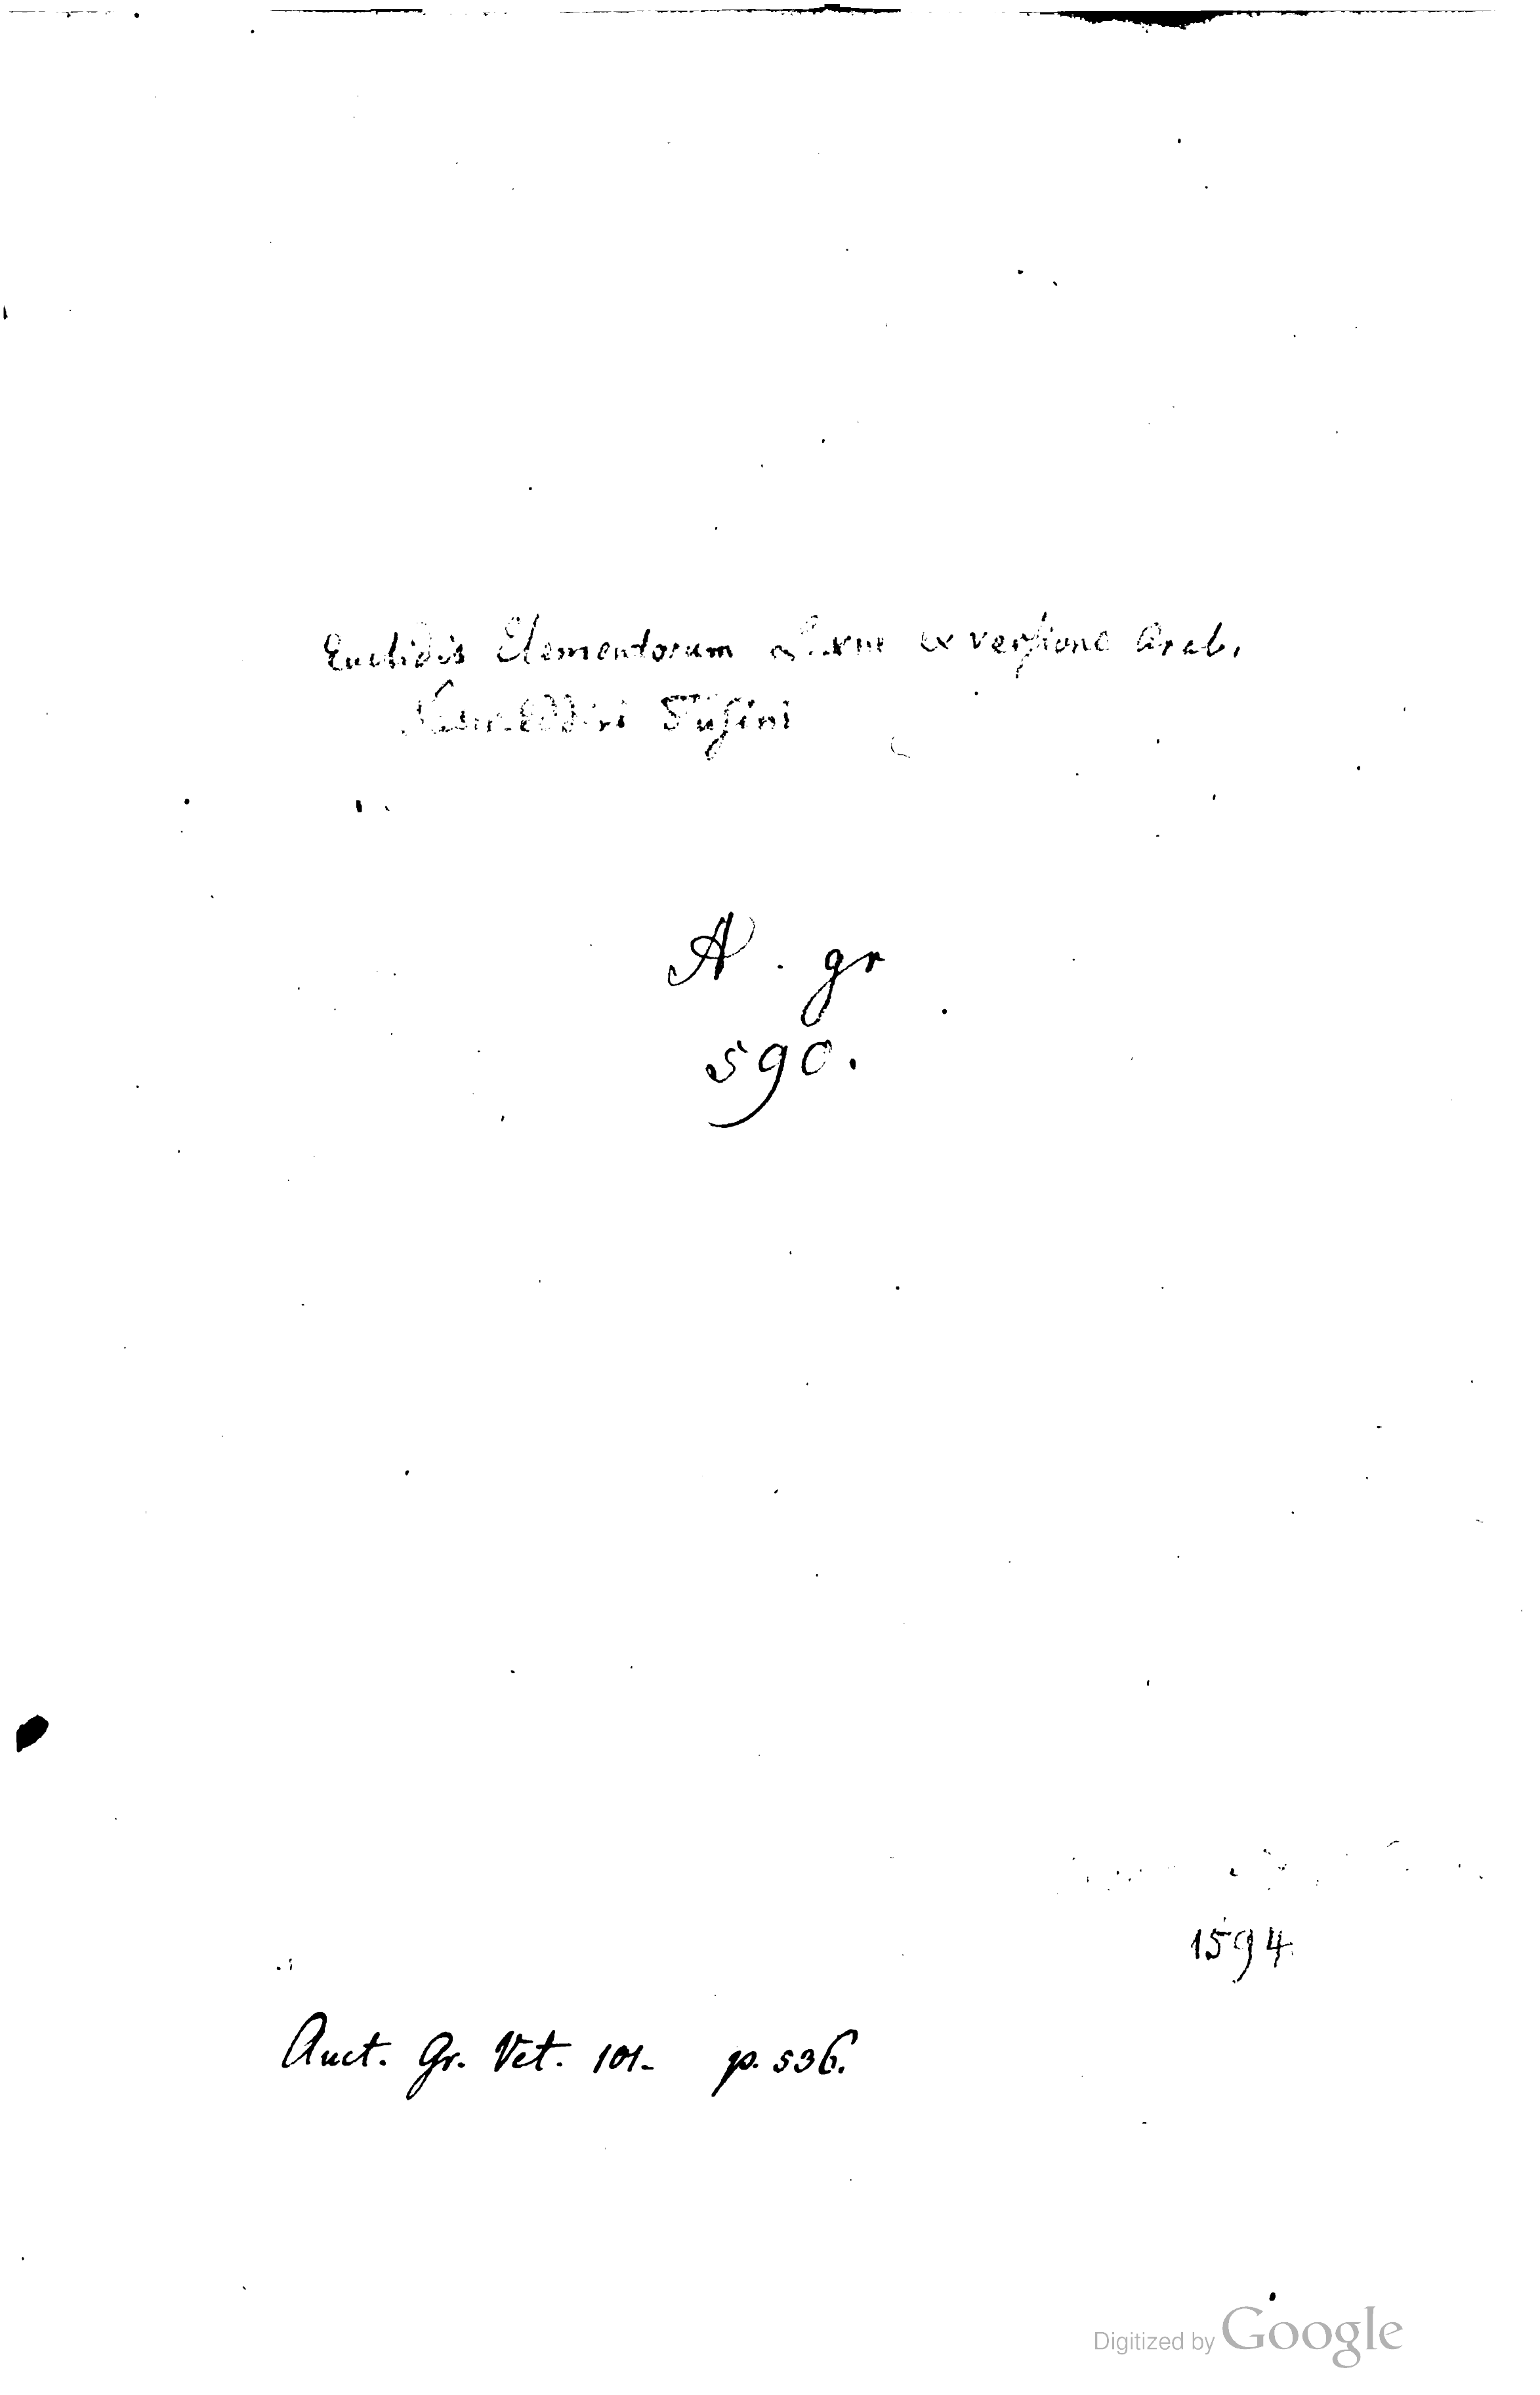 Euclidis Elementorum L. XIII ex versione Arab.
Tusini
A. gr
590.
1594.
Auct. Gr. Vet. 101. p. 536.
Digitized by Google